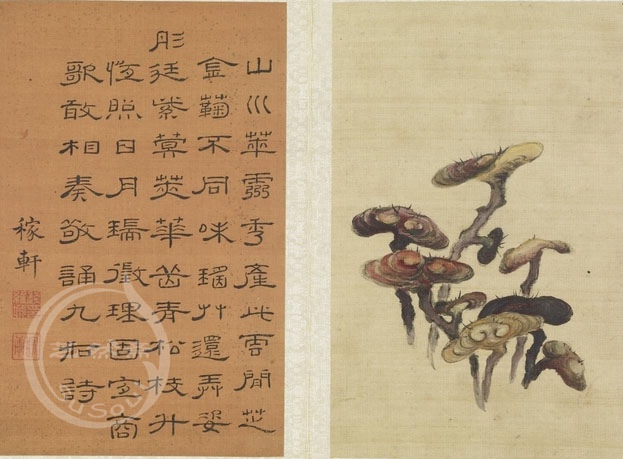 山川華靈秀產此雲間芝
金鞠不同味瑤艸還弄姿
彤廷紫蓂莢華葢青松枝升
恆照日月瑞徵理固宜商
歌敢相奏敬誦九如詩
稼軒